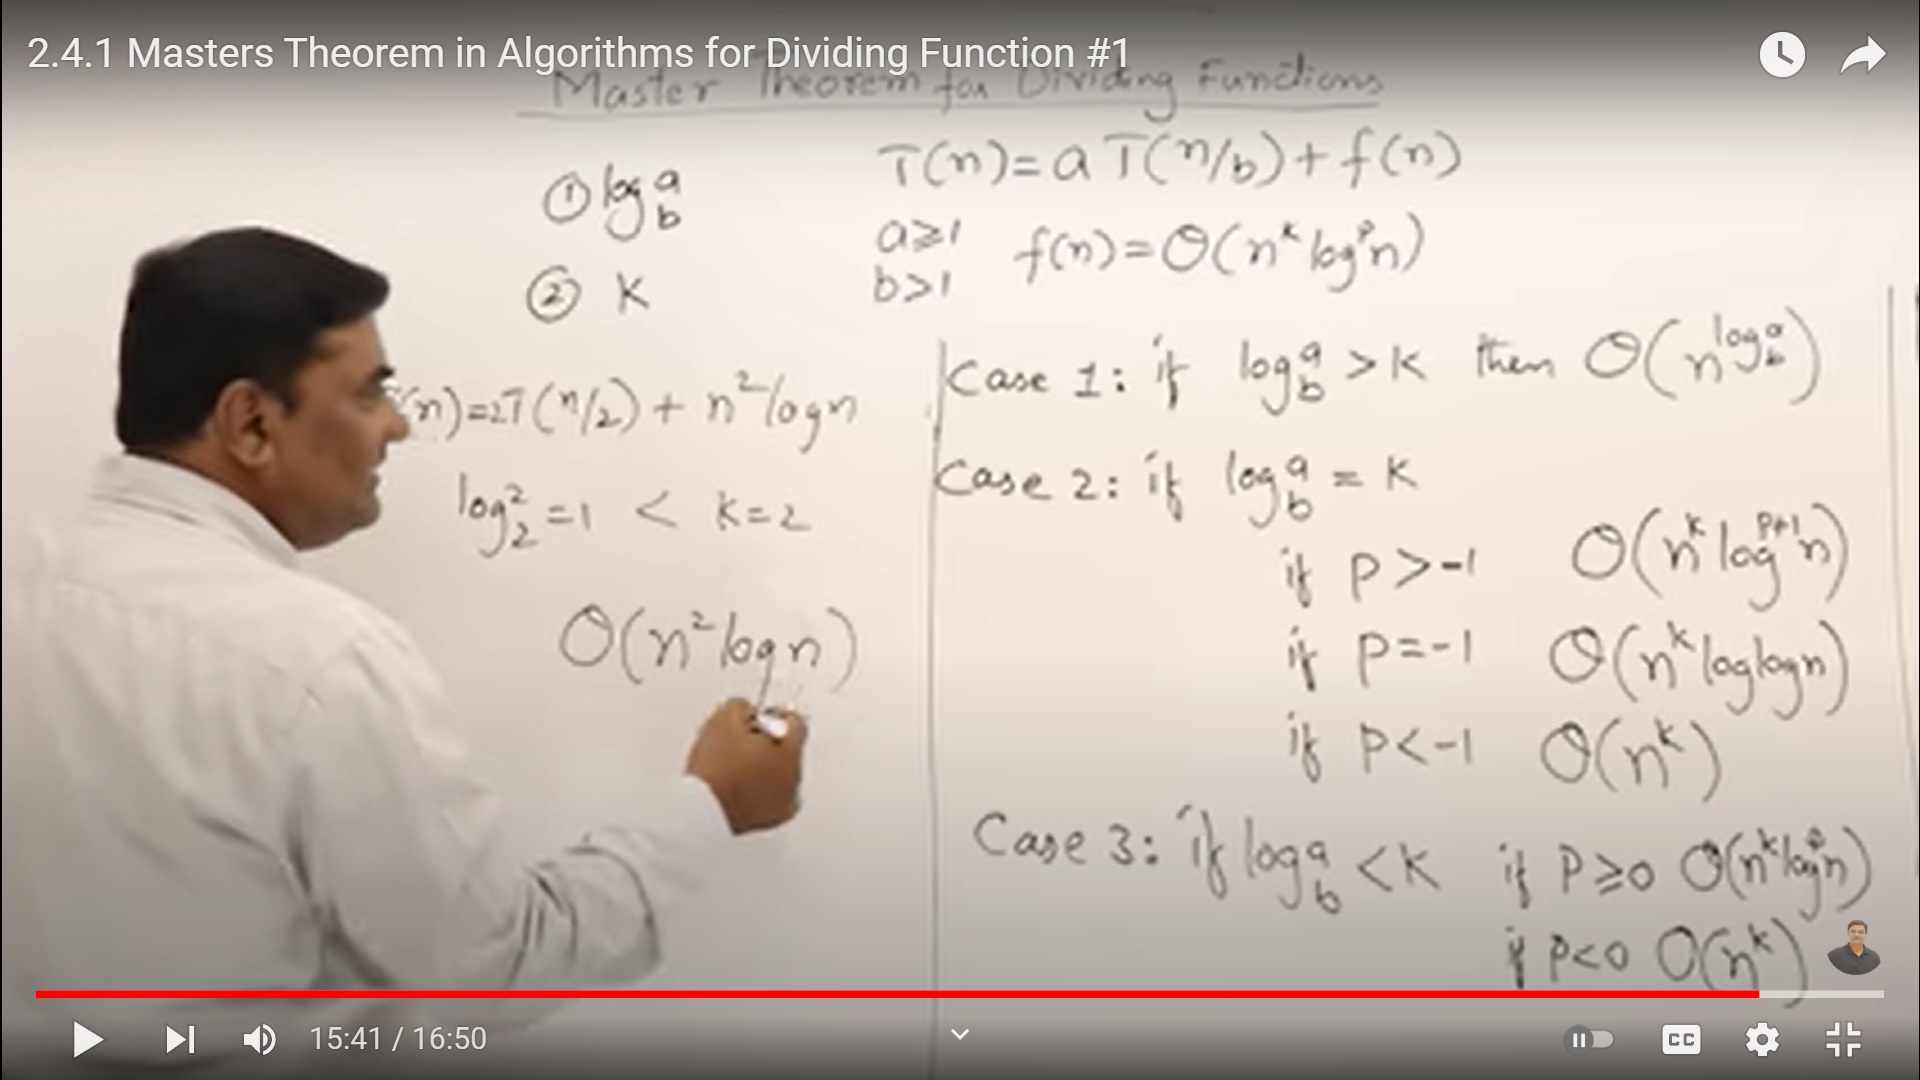 2.4.1 Masters Theorem in Algorithms for Dividing Function #1
Master Theorem for Dividing Functions
① log_b^a
② K
T(n)=aT(n/b)+f(n)
a≥1
b>1
f(n)=Θ(n^k log^p n)
T(n)=2T(n/2)+n^2 log n
log_2^2=1 < K=2
Θ(n^2 log n)
Case 1: if log_b^a >K then Θ(n^{log_b^a})
Case 2: if log_b^a = K
if P>-1 Θ(n^k log^{p+1} n)
if P=-1 Θ(n^k loglogn)
if P<-1 Θ(n^k)
Case 3: if log_b^a <K if P≥0 Θ(n^k log^p n)
if P<0 O(n^k)
15:41 / 16:50
CC